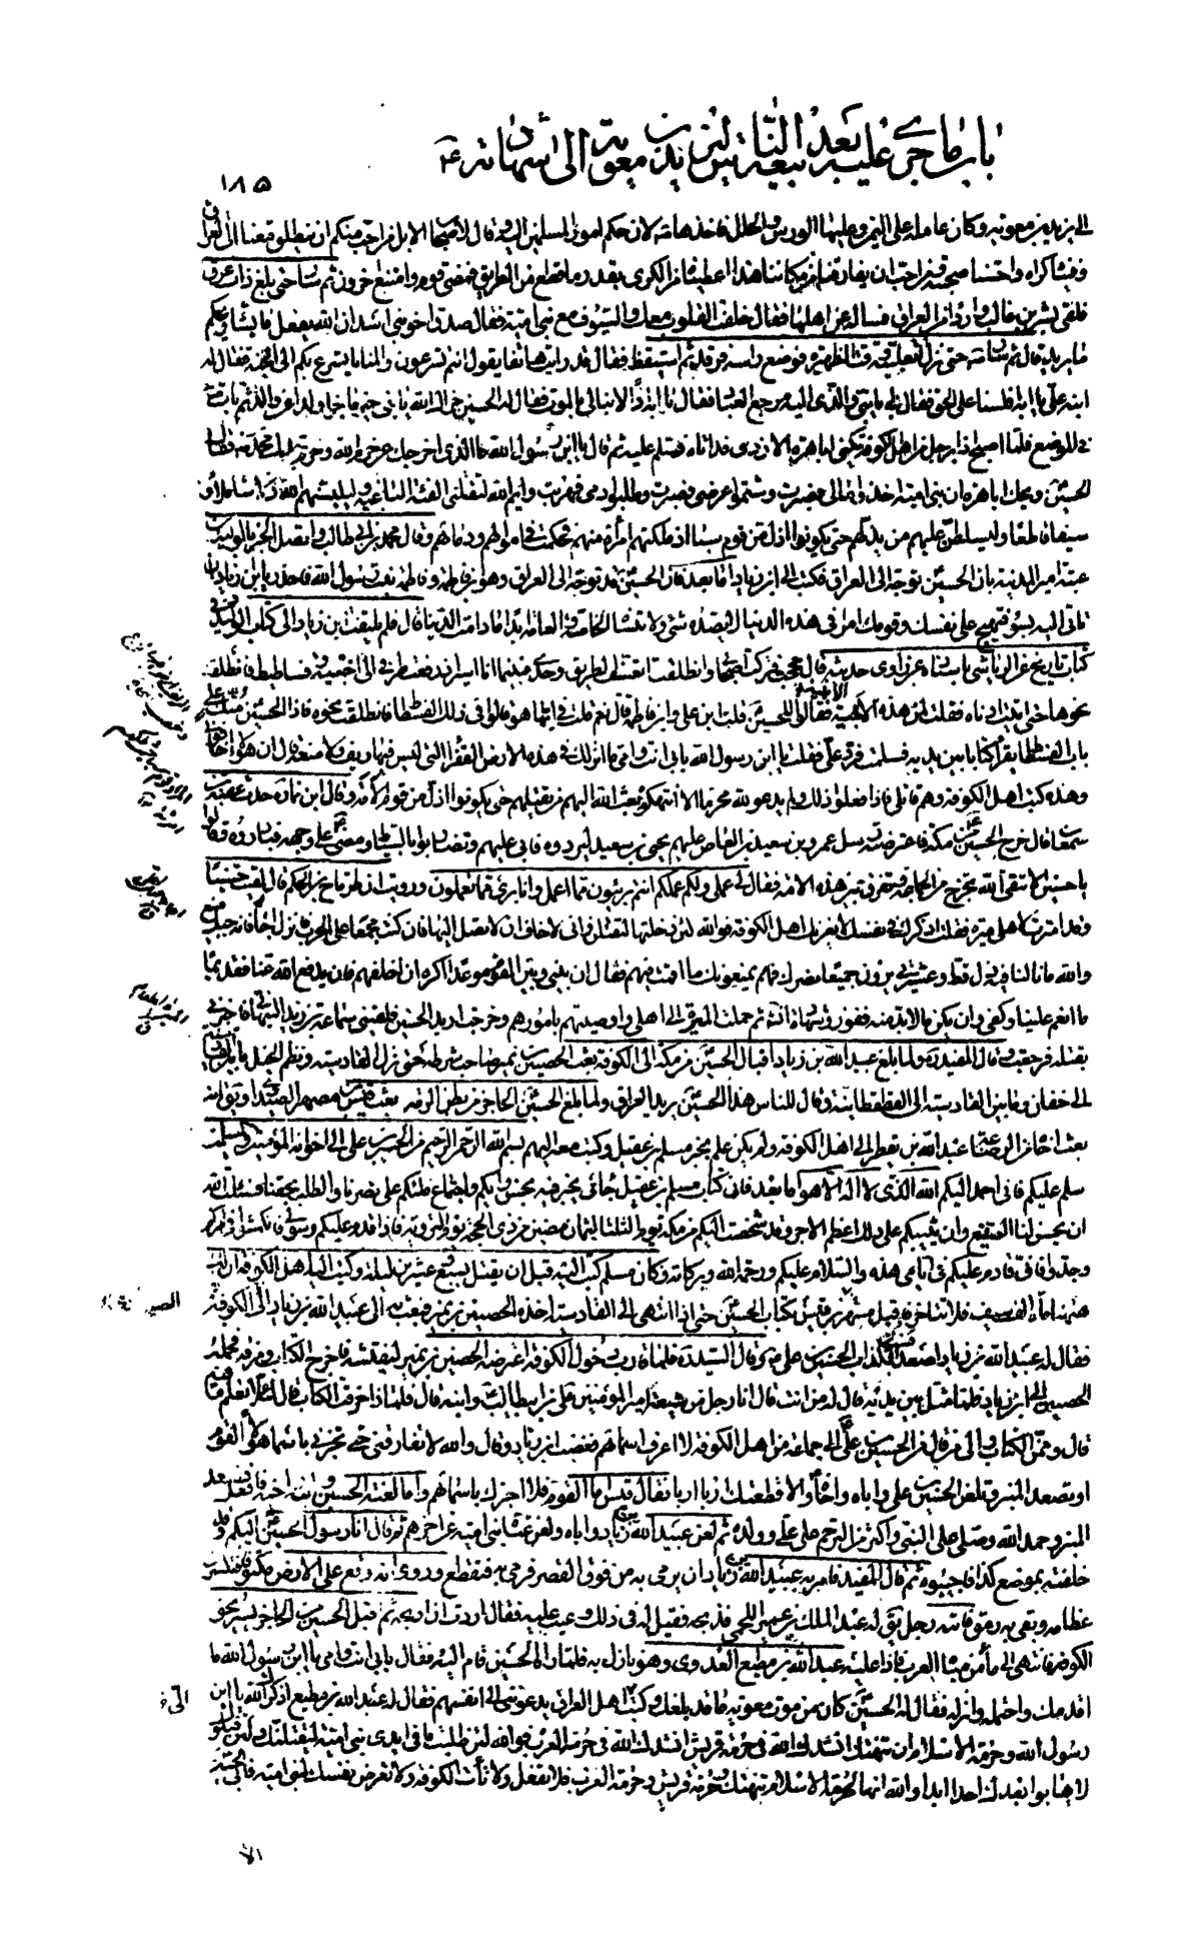 باب ما جرى عليه بعد بيعة الناس ليزيد بن معوية الى شهادته
١٨٥
الى يزيد بن معوية وكان عامله على اليمن وعليها الورس والحلل فاخذها لان حكم امور المسلمين اليه وقال لاصحاب الابل من احب منكم ان ينطلق معنا الى العراق
وفيناه كراه واحسنا صحبته ومن احب ان يفارقنا من مكاننا هذا اعطيناه من الكرى بقدر ما قطع من الطريق فمضى قوم وامتنع اخرون ثم سار حتى بلغ ذات عرق
فلقى بشر بن غالب واردا من العراق فساله عن اهلها فقال خلفت القلوب معك والسيوف مع بنى امية فقال صدق اخو بنى اسد ان الله يفعل ما يشاء ويحكم
ما يريد قال ثم سار حتى نزل الثعلبية وقت الظهيرة فوضع راسه فرقد ثم استيقظ فقال قد رايت هاتفا يقول انتم تسرعون والمنايا تسرع بكم الى الجنة فقال له
ابنه على يا ابه افلسنا على الحق فقال بلى يا بنى والذى اليه مرجع العباد فقال يا ابه اذا لا نبالى بالموت فقال له الحسين جزاك الله يا بنى خير ما جزا ولدا عن والد ثم بات
فى الموضع فلما اصبح اذا برجل من اهل الكوفة يكنى ابا هرة الازدى قد اتاه فسلم عليه ثم قال يا ابن رسول الله ما الذى اخرجك عن حرم الله وحرم جدك محمد فقال
الحسين ويحك ابا هرة ان بنى امية اخذوا مالى فصبرت وشتموا عرضى فصبرت وطلبوا دمى فهربت وايم الله لتقتلنى الفئة الباغية وليلبسنهم الله ذلا شاملا و
سيفا قاطعا وليسلطن عليهم من يذلهم حتى يكونوا اذل من قوم سبا اذ ملكتهم امرأة منهم فحكمت فى اموالهم ودمائهم وقال محمد بن ابى طالب واتصل الخبر بالوليد بن
عتبة امير المدينة بان الحسين توجه الى العراق فكتب الى ابن زياد اما بعد فان الحسين قد توجه الى العراق وهو ابن فاطمة وفاطمة بنت رسول الله فاحذر يا بن زياد ان
تاتى اليه بسوء فتهيج على نفسك وقومك امرا فى هذه الدنيا لا يصده شئ ولا تنساه الخاصة والعامة ابدا ما دامت الدنيا قال فلم يلتفت ابن زياد الى كتاب الوليد
نحوها حتى اتيت ادناه فقلت لمن هذه الابنية فقالوا للحسين قلت ابن على وابن فاطمة قال نعم قلت فى ايها هو قالوا فى ذلك الفسطاط فانطلقت نحوه فاذا الحسين متك على
باب الفسطاط يقرأ كتابا بين يديه فسلمت فرد على فقلت يا ابن رسول الله بابى انت وامى ما انزلك فى هذه الارض القفرا التى ليس فيها ريف ولا منعة قال ان هؤلاء اخافونى
وهذه كتب اهل الكوفة وهم قاتلى فاذا فعلوا ذلك ولم يدعوا لله محرما الا انتهكوه بعث الله اليهم من يقتلهم حتى يكونوا اذل من قوم الامة وقال ابن نما حدث عقبة بن
سمعان قال خرج الحسين من مكة فاعترضته رسل عمرو بن سعيد بن العاص عليهم يحيى بن سعيد ليردوه فابى عليهم وتضاربوا بالسياط ومضى على وجهه فبادروه وقالوا
يا حسين الا تتقى الله تخرج من الجماعة وتفرق بين هذه الامة فقال لى عملى ولكم عملكم انتم بريئون مما اعمل وانا برئ مما تعملون ورويت ان طرماح بن حكم قال لقيت حسينا
وقد امترت لاهلى ميرة فقلت اذكرك فى نفسك لا يغرنك اهل الكوفة فوالله لئن دخلتها لتقتلن وانى لاخاف ان لا تصل اليها فان كنت مجمعا على الحرب فانزل اجأ فانه جبل منيع
والله ما نالنا فيه ذل قط وعشيرتى يرون جميعا نصرك فهم يمنعونك ما اقمت فيهم فقال ان بينى وبين القوم موعدا اكره ان اخلفهم فان يدفع الله عنا فقديما
ما انعم علينا وكفى وان يكن ما لا بد منه ففوز وشهادة انشاء الله ثم حملت الميرة الى اهلى واوصيتهم بامورهم وخرجت اريد الحسين فلقينى سماعة بن زيد النبهانى فاخبرنى
بقتله فرجعت وقال المفيد ولما بلغ عبيد الله بن زياد اقبال الحسين من مكة الى الكوفة بعث الحصين بن نمير صاحب شرطه حتى نزل القادسية ونظم الخيل ما بين القادسية
الى خفان وما بين القادسية الى القطقطانة وقال للناس هذا الحسين يريد العراق ولما بلغ الحسين الحاجز من بطن الرمة بعث قيس بن مصهر الصيداوى ويقال انه
بعث اخاه من الرضاعة عبد الله بن يقطر الى اهل الكوفة ولم يكن علم بخبر مسلم بن عقيل وكتب معه اليهم بسم الله الرحمن الرحيم من الحسين بن على الى اخوانه المؤمنين والمسلمين
سلام عليكم فانى احمد اليكم الله الذى لا اله الا هو اما بعد فان كتاب مسلم بن عقيل جائنى يخبر فيه بحسن رايكم واجتماع ملئكم على نصرنا والطلب بحقنا فسئلت الله
ان يحسن لنا الصنيع وان يثيبكم على ذلك اعظم الاجر وقد شخصت اليكم من مكة يوم الثلثا لثمان مضين من ذى الحجة يوم التروية فاذا قدم عليكم رسولى فانكمشوا فى امركم
وجدوا فانى قادم عليكم فى ايامى هذه والسلام عليكم ورحمة الله وبركاته وكان مسلم كتب اليه قبل ان يقتل بسبع وعشرين ليلة وكتب اليه اهل الكوفة ان لك
هيهنا مائة الف سيف فلا تتاخر فاقبل قيس بن مسهر بكتاب الحسين حتى اذا انتهى الى القادسية اخذه الحصين بن نمير فبعث به الى عبيد الله بن زياد الى الكوفة
فقال له عبيد الله بن زياد اصعد فسب الكذاب الحسين بن على وقال السيد فلما قارب دخول الكوفة اعترضه الحصين بن نمير ليفتشه فاخرج الكتاب ومزقه فحمله
الحصين الى ابن زياد فلما مثل بين يديه قال له من انت قال انا رجل من شيعة امير المؤمنين على بن ابيطالب وابنه قال فلماذا خرقت الكتاب قال لئلا تعلم ما فيه
قال وممن الكتاب والى من قال من الحسين بن على الى جماعة من اهل الكوفة لا اعرف اسمائهم فغضب ابن زياد وقال والله لا تفارقنى حتى تخبرنى باسماء هؤلاء القوم
او تصعد المنبر وتلعن الحسين بن على واباه واخاه والا قطعتك اربا اربا فقال قيس اما القوم فلا اخبرك باسمائهم واما لعنة الحسين وابيه واخيه فافعل فصعد
المنبر وحمد الله وصلى على النبى واكثر من الترحم على على وولده ثم لعن عبيد الله بن زياد واباه ولعن عتاة بنى امية عن اخرهم ثم قال انا رسول الحسين اليكم وقد
خلفته بموضع كذا فاجيبوه ثم قال المفيد فامر به عبيد الله بن زياد ان يرمى به من فوق القصر فرمى به فتقطع وروى انه وقع على الارض مكتوفا فتكسرت
عظامه وبقى به رمق فاتاه رجل يق له عبد الملك بن عمير اللخمى فذبحه فقيل له فى ذلك وعيب عليه فقال اردت ان اريحه ثم اقبل الحسين من الحاجز يسير نحو
الكوفة فانتهى الى ماء من مياه العرب فاذا عليه عبد الله بن مطيع العدوى وهو نازل به فلما راه الحسين قام اليه فقال بابى انت وامى يا ابن رسول الله ما
اقدمك واحتمله وانزله فقال له الحسين كان من موت معوية ما قد بلغك وكتب الى اهل العراق يدعوننى الى انفسهم فقال له عبد الله بن مطيع اذكرك الله يا ابن
رسول الله وحرمة الاسلام ان تنتهك انشدك الله فى حرمة قريش انشدك الله فى حرمة العرب فوالله لئن طلبت ما فى ايدى بنى امية ليقتلنك ولئن قتلوك
لا يهابوا بعدك احدا ابدا والله انها لحرمة الاسلام تنتهك وحرمة قريش وحرمة العرب فلا تفعل ولا تأت الكوفة ولا تعرض نفسك لبنى امية فابى الحسين
الا